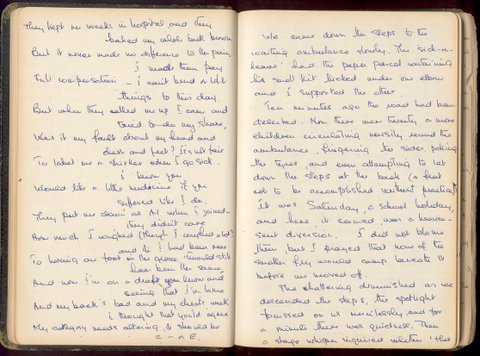 They kept me weeks in hospital and they
baked my whole back brown
But it never made no difference to the pain.
I made them pay
Full compensation – I can't bend or lift
things to this day.
But when they called me up I came and
tried to do my share,
Was it my fault about my head and
chest and feet? It's not fair
To label me a shirker when I go sick.
I know you
Would like a little medicine if you
suffered like I do.
They put me down as A1 when I joined–
they didn't care
How much I coughed (though I coughed a lot)
and if I had been
To having one foot in the grave it would still
have been the same,
And now I'm on a draft you know and
seeing that I'm lame
And my back's bad and my chest's weak
I thought that you'd agree
My category needs altering & should be
C – n E.
We came down the steps to the
waiting ambulance slowly. The sick-a-
had the paper parcel containing
his small kit locked under one elbow
and I supported the other.
Ten minutes ago the road had been
deserted. Now there were twenty or more
children circulating noisily round the
ambulance, fingering the sides, poking
the tyres and even attempting to let
down the steps at the back (a feat
not to be accomplished without practice)
It was Saturday, a school holiday,
and here it seemed was a heaven-
sent diversion. I did not blame
them but I prayed that none of the
smaller fry would camp beneath it
before we moved off.
The chattering diminished as we
descended the steps, the spotlight
focussed on us mercilessly and for
a minute there was quietness. Then
a stage whisper inquired whether 'that